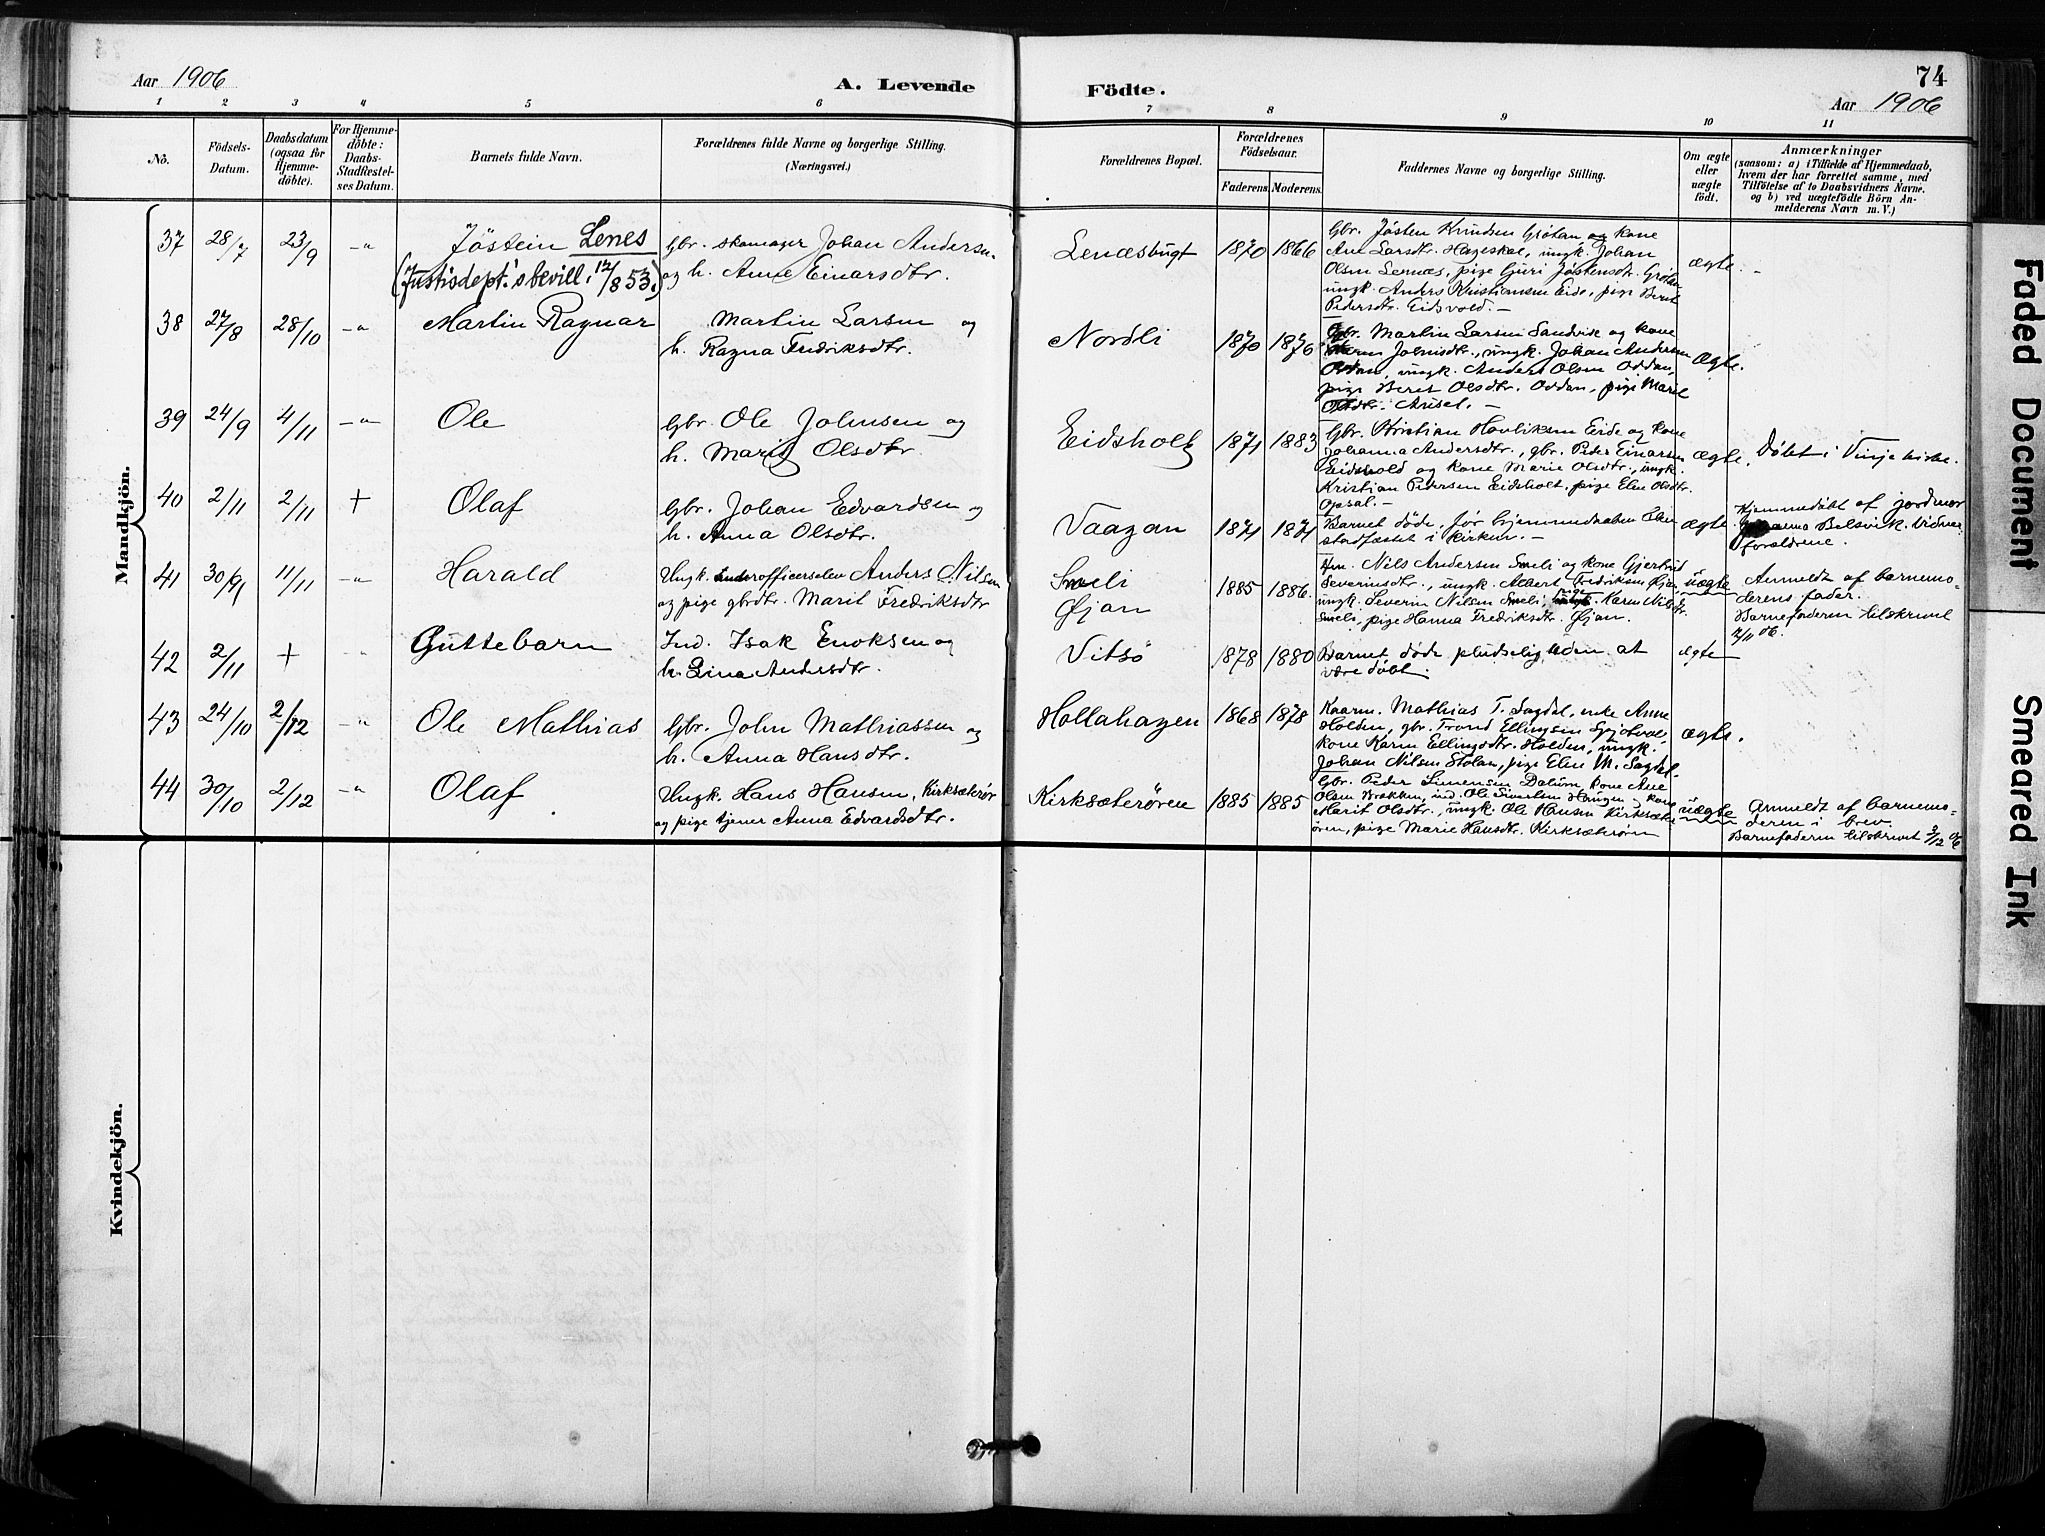 Aar 1906
A. Levende
Födte.
74
Aar 1906
1 2 3 4 5 6 7 8 9 10 11
No.
Födsels-
Datum.
Daabsdatum
(ogsaa for
Hjemme-
döbte).
For Hjemme-
döbte:
Daabs-
Stadfæstel-
ses Datum.
Barnets fulde Navn.
Forældrenes fulde Navne og borgerlige Stilling.
(Næringsvei.)
Forældrenes Bopæl.
Forældrenes
Födselsaar.
Faderens. Moderens.
Faddernes Navne og borgerlige Stilling.
Om ægte
eller
uægte
födt.
Anmærkninger
(saasom: a) i Tilfælde af Hjemmedaab,
hvem der har forrettet samme, med
Tilföielse af to Daabsvidners Navne.
og b) ved uægtefödte Börn An-
melderens Navn m. V.)
Mandkjön.
37 28/7 23/9 -"- Jöstein Lenes
(Justisdept.'s bevill. 12/8 53.)
Gbr. skomager Johan Andersen
og h. Anne Einarsdtr.
Lenæsbugt 1870 1866
Gbr. Jösten Knudsen Grötan og kone
Ane Larsdt. Hageskal, ungk. Johan
Olsen Lenæs, pige Guri Jöstensdtr. Grötan
ungk. Anders Kristiansen Eide, pige Berit
Pedersdtr. Eidsvold. -
ægte. -
38 27/8 28/10 -"- Martin Ragnar
Martin Larsen og
h. Ragna Fredriksdtr.
Nordli 1870 1876
Gbr. Martin Larsen Sandvik og kone
Johnsdtr., ungk. Johan Andersen
Oddan, ungk. Anders Olsen Oddan,
pige Berit Olsdtr. Oddan, pige Marie
Olsdtr. Aunsel. -
ægte.
39 24/9 4/11 -"- Ole
Gbr. Ole Johnsen og
h. Marit Olsdtr.
Eidsholt 1871 1883
Gbr. Kristian Havliksen Eide og kone
Johanna Andersdtr., gbr. Peder Einarsen
Eidsvold og kone Marie Olsdtr., ungk.
Kristian Pedersen Eidsholt, pige Elen Olsdtr.
Opsal. -
ægte. Döbt i Vinje kirke.
40 2/11 2/11 + Olaf
Gbr. Johan Edvardsen og
h. Anna Olsdtr.
Vaagan 1871 1871
Barnet döde, för hjemmedaaben blev
stadfæstet i kirken. -
ægte
Hjemmedöbt af jordmor
Belsvik. Vidner
forældrene.
41 30/9 11/11 -"- Harald
Ungk. underofficerselev Anders Nilsen
og pige gbrdtr. Marit Fredriksdtr
Smeli
Øjan
1885 1886.
Hm. Nils Andersen Smeli og kone Gjertrud
Severinsdtr., ungk. Albert Fredriksen Øjan,
ungk. Severin Nilsen Smeli, pige Karen Nilsdtr.
Smeli, pige Hanna Fredriksdtr. Øjan.
uægte
Anmeldt af barnemo-
derens fader.
Barnefaderen tilskrevet
/11 06.
42 2/11 + -"- Guttebarn
Ind. Isak Enoksen og
h. Lina Andersdtr.
Vitsö 1878 1880
Barnet döde pludselig uden at
være döbt.
ægte
43 24/10 2/12 -"- Ole Mathias
Gbr. John Mathiassen og
h. Anna Hansdtr.
Hollahagen 1868 1878
Kaarm. Mathias T. Sagdal, enke Anne
Holden, gbr. Trond Ellingsen Spjotvol
kone Karen Ellingsdtr. Holden, ungk.
Johan Nilsen Stolan, pige Elen M. Sagdal.
ægte.
44 30/10 2/12 -"- Olaf
Ungk. Hans Hansen, Kirksæterör
og pige tjener Anna Edvardsdtr.
Kirksæterören 1885 1885
Gbr. Peder Simensen Dalum, kone Ane
Olsen Brækken, ind. Ole Sivertsen Haugen, kone
Marit Olsdtr., ungk. Ole Hansen Kirksæter-
ören, pige Marie Hansdtr. Kirksæterören
uægte
Anmeldt af barnemo-
deren i brev.
Barnefaderen tilskrevet 3/12 06
Kvindekjön.
Faded Document
Smeared Ink